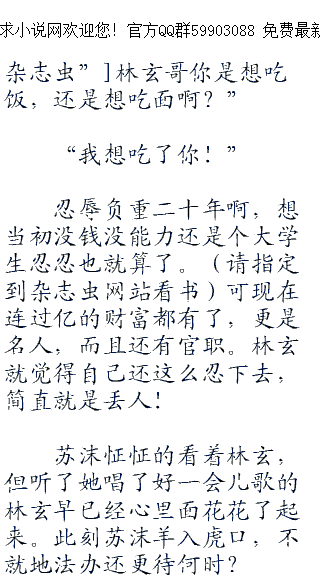 求小说网欢迎您！官方QQ群59903088 免费最新
杂志虫”]林玄哥你是想吃
饭，还是想吃面啊？”
“我想吃了你！”
忍辱负重二十年啊，想
当初没钱没能力还是个大学
生忍忍也就算了。（请指定
到杂志虫网站看书）可现在
连过亿的财富都有了，更是
名人，而且还有官职。林玄
就觉得自己还这么忍下去，
简直就是丢人！
苏沫怔怔的看着林玄，
但听了她唱了好一会儿歌的
林玄早已经心里面花花了起
来。此刻苏沫羊入虎口，不
就地法办还更待何时？